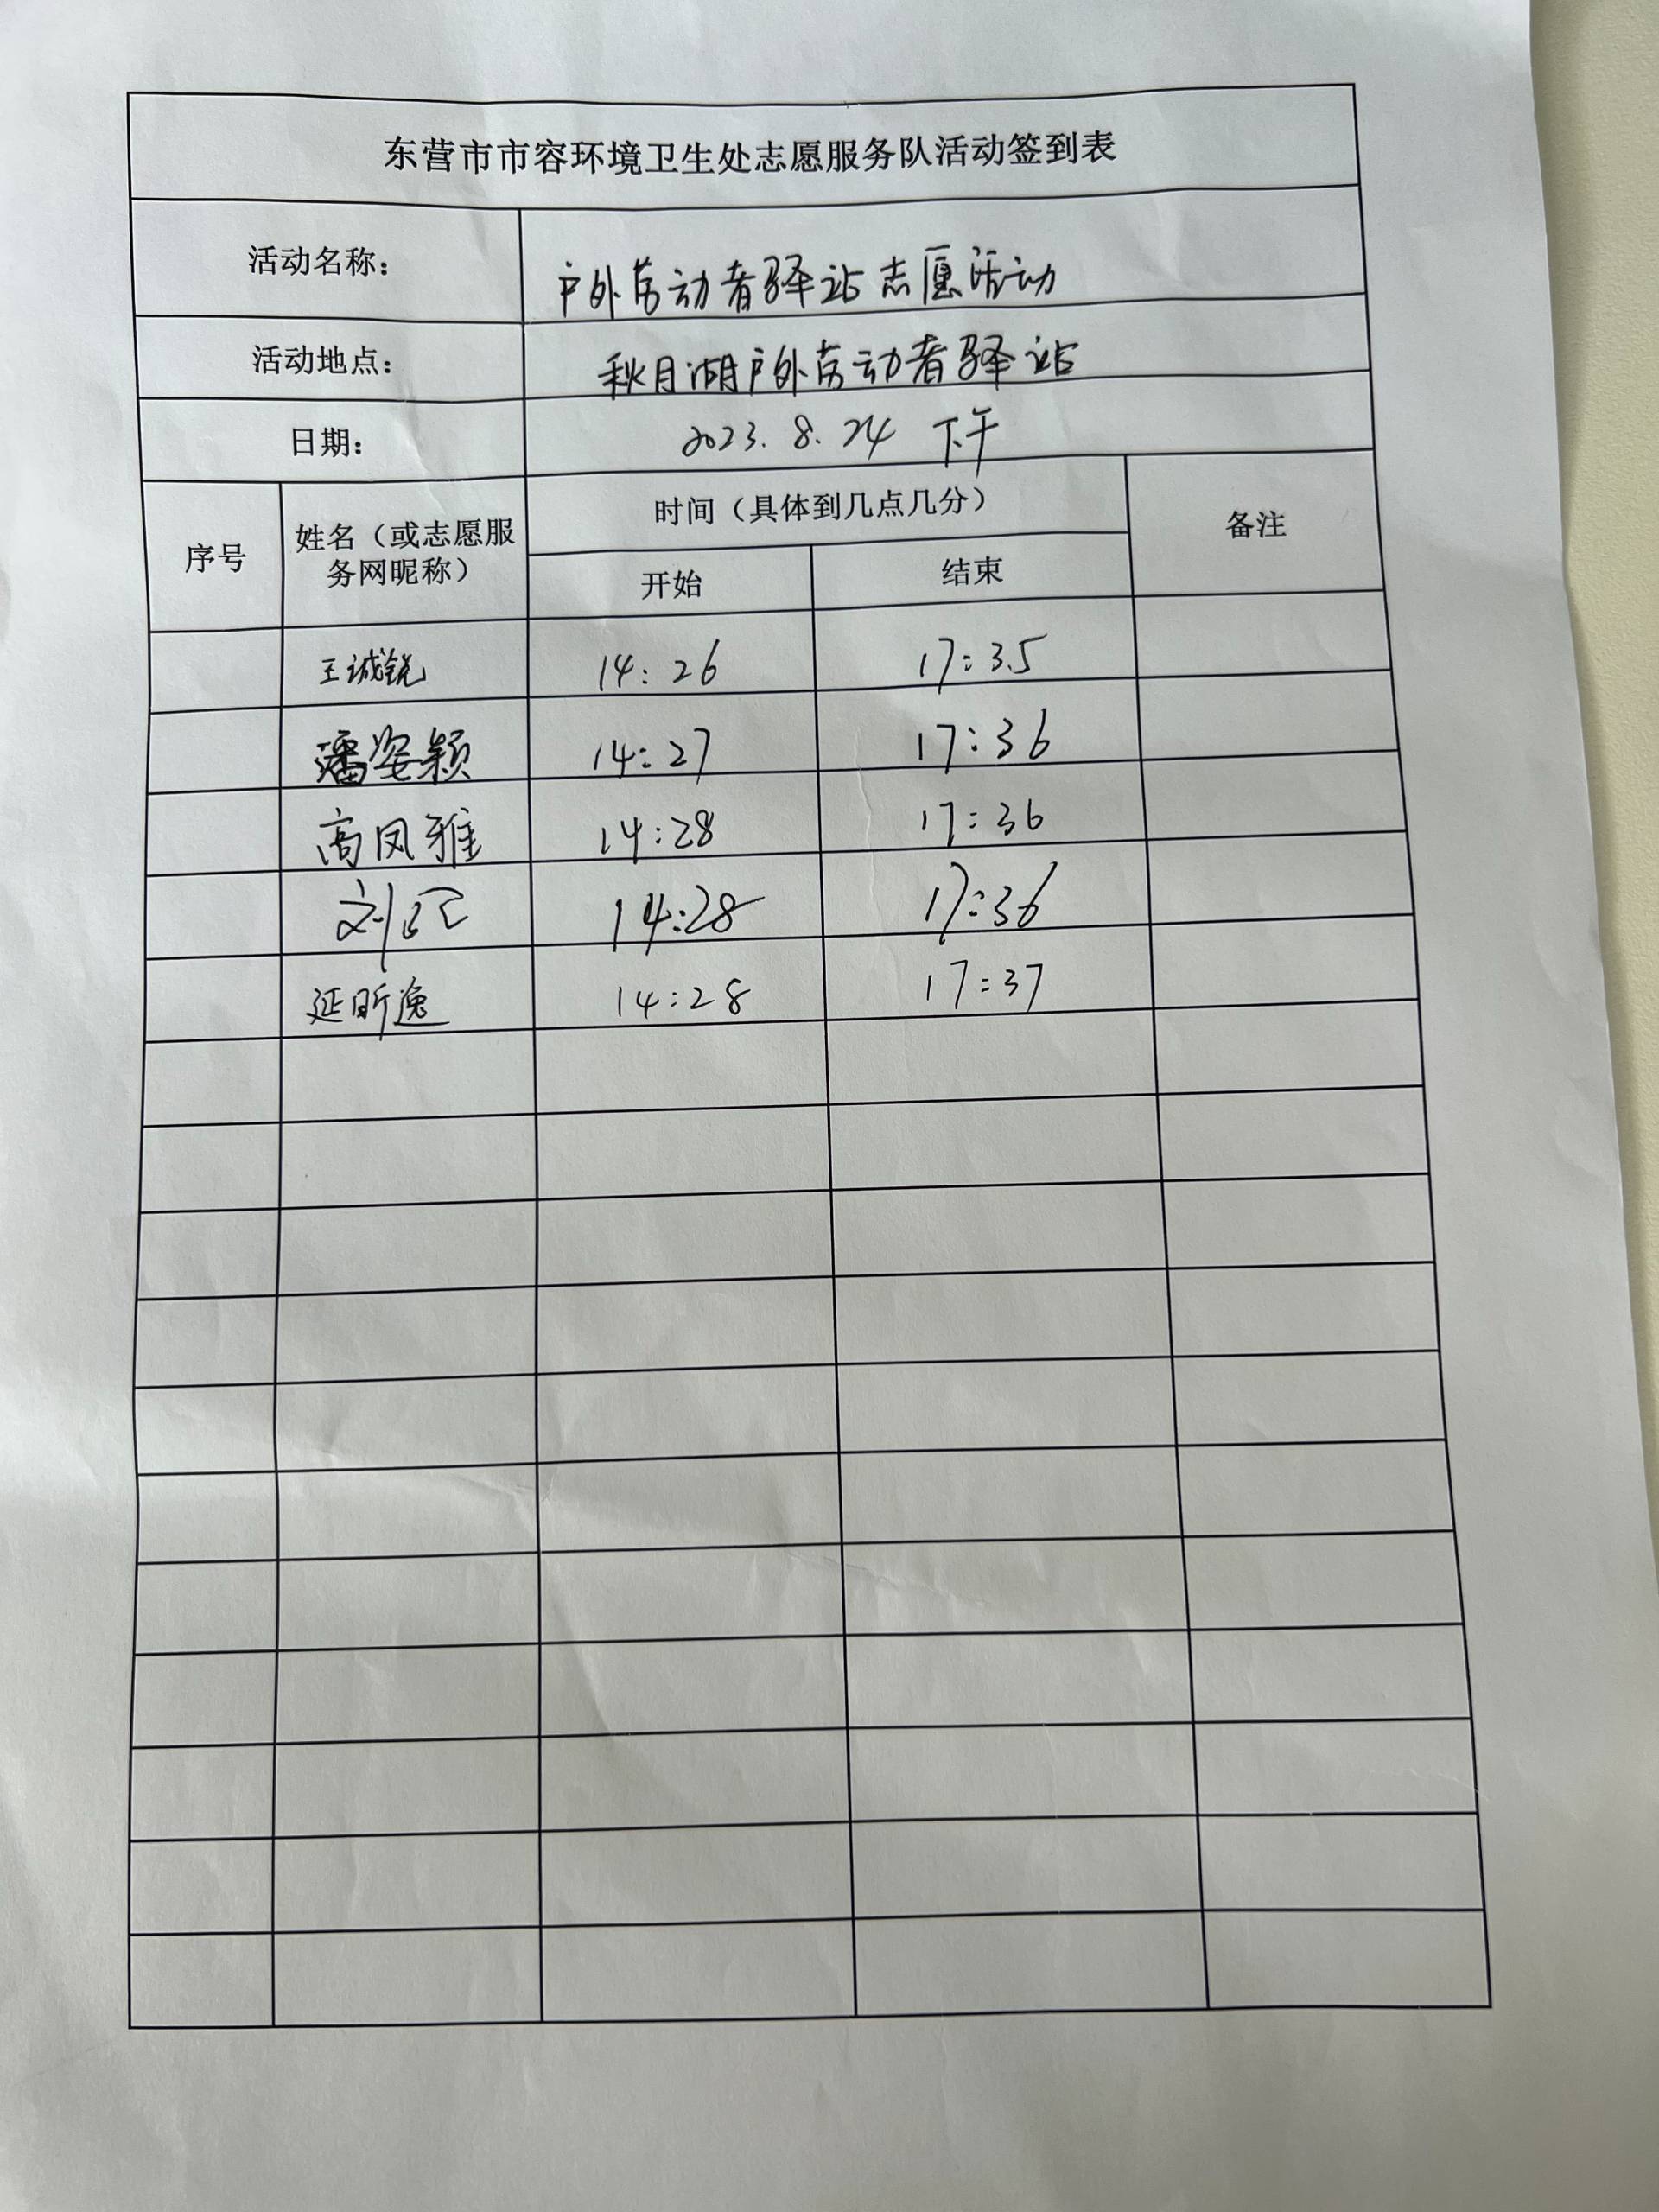 东营市市容环境卫生处志愿服务队活动签到表
活动名称： 户外劳动者驿站志愿活动
活动地点： 秋月湖户外劳动者驿站
日期： 2023.8.24 下午
序号 姓名（或志愿服务网昵称） 时间（具体到几点几分） 备注
开始 结束
王诚锐 14:26 17:35
潘姿颖 14:27 17:36
高凤雅 14:28 17:36
刘 14:28 17:36
延昕逸 14:28 17:37